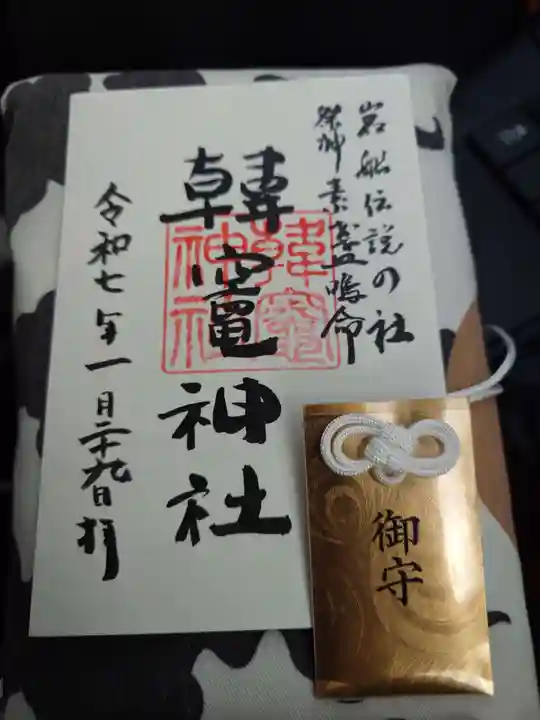 岩船伝説の社
祭神素盞嗚命
韓竈神社
韓竈
神社
令和七年一月二十九日拝
御守